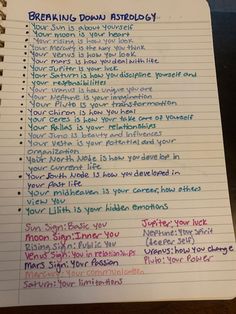 BREAKING DOWN ASTROLOGY
• Your Sun is about yourself
• Your moon is your heart
• Your rising is how you look
• Your Mercury is the way you think
• Your Venus is how you love
• Your mars is how you deal with life
• Your Jupiter is your luck
• Your Saturn is how you discipline yourself and
your responsibilities
• Your Uranus is how unique you are
• Your Neptune is your imagination
• Your Pluto is your transformation
• Your Chiron is how you heal
• Your Ceres is how your take care of yourself
• Your Pallas is your relationships
• Your Juno is beauty and influences
• Your Vesta is your potential and your
organization
• Your North Node is how you develop in
your current life
• Your South Node is how you developed in
your past life
• Your midheaven is your career; how others
view you
• Your Lilith is your hidden emotions
Sun Sign: Basic you
Moon Sign: Inner you
Rising Sign: Public you
Venus Sign: You in relationships
Mars Sign: Your Passion
Mercury: Your communication
Saturn: Your limitations
Jupiter: Your luck
Neptune: Your Spirit
(deeper self)
Uranus: how you change
Pluto: Your Power